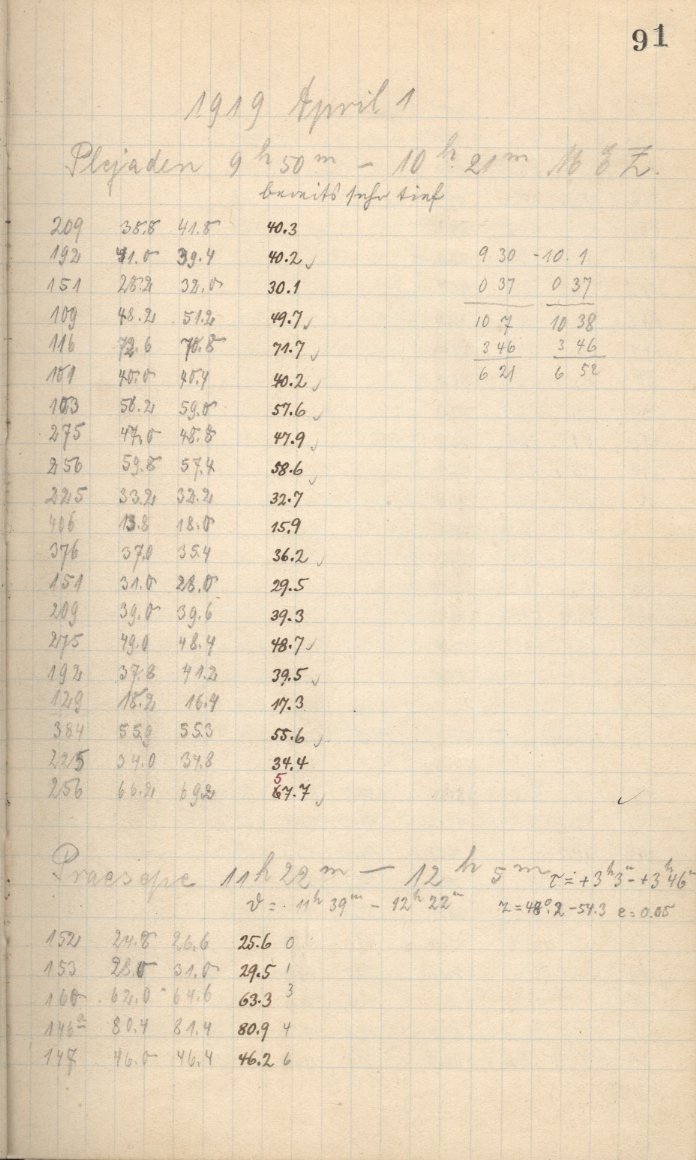 91
1919 April 1
Plejaden 9h 50m - 10h 21m M E Z.
bereits sehr tief
209 38.8 41.8 40.3
192 41.0 39.4 40.2 9 30 - 10. 1
151 28.2 32.0 30.1 0 37 0 37
109 48.2 51.2 49.7 10 7 10 38
116 72.6 70.8 71.7 3 46 3 46
101 40.0 40.4 40.2 6 21 6 52
103 56.2 59.0 57.6
275 47.0 48.8 47.9
256 59.8 57.4 58.6
225 33.2 32.2 32.7
406 13.8 18.0 15.9
376 37.0 35.4 36.2
151 31.0 28.0 29.5
209 39.0 39.6 39.3
275 49.0 48.4 48.7
192 37.8 41.2 39.5
129 18.2 16.4 17.3
384 55.9 55.3 55.6
225 34.0 34.8 34.4
256 66.2 69.2 5 67.7
Praesepe 11h 22m - 12h 5m τ = +3h 3m - +3h 46m
ϑ = 11h 39m - 12h 22m z = 48°.2 - 54.3 e = 0.05
152 24.8 26.6 25.6 0
153 28.0 31.0 29.5 1
160 62.0 64.6 63.3 3
146a 80.4 81.4 80.9 4
147 46.0 46.4 46.2 6